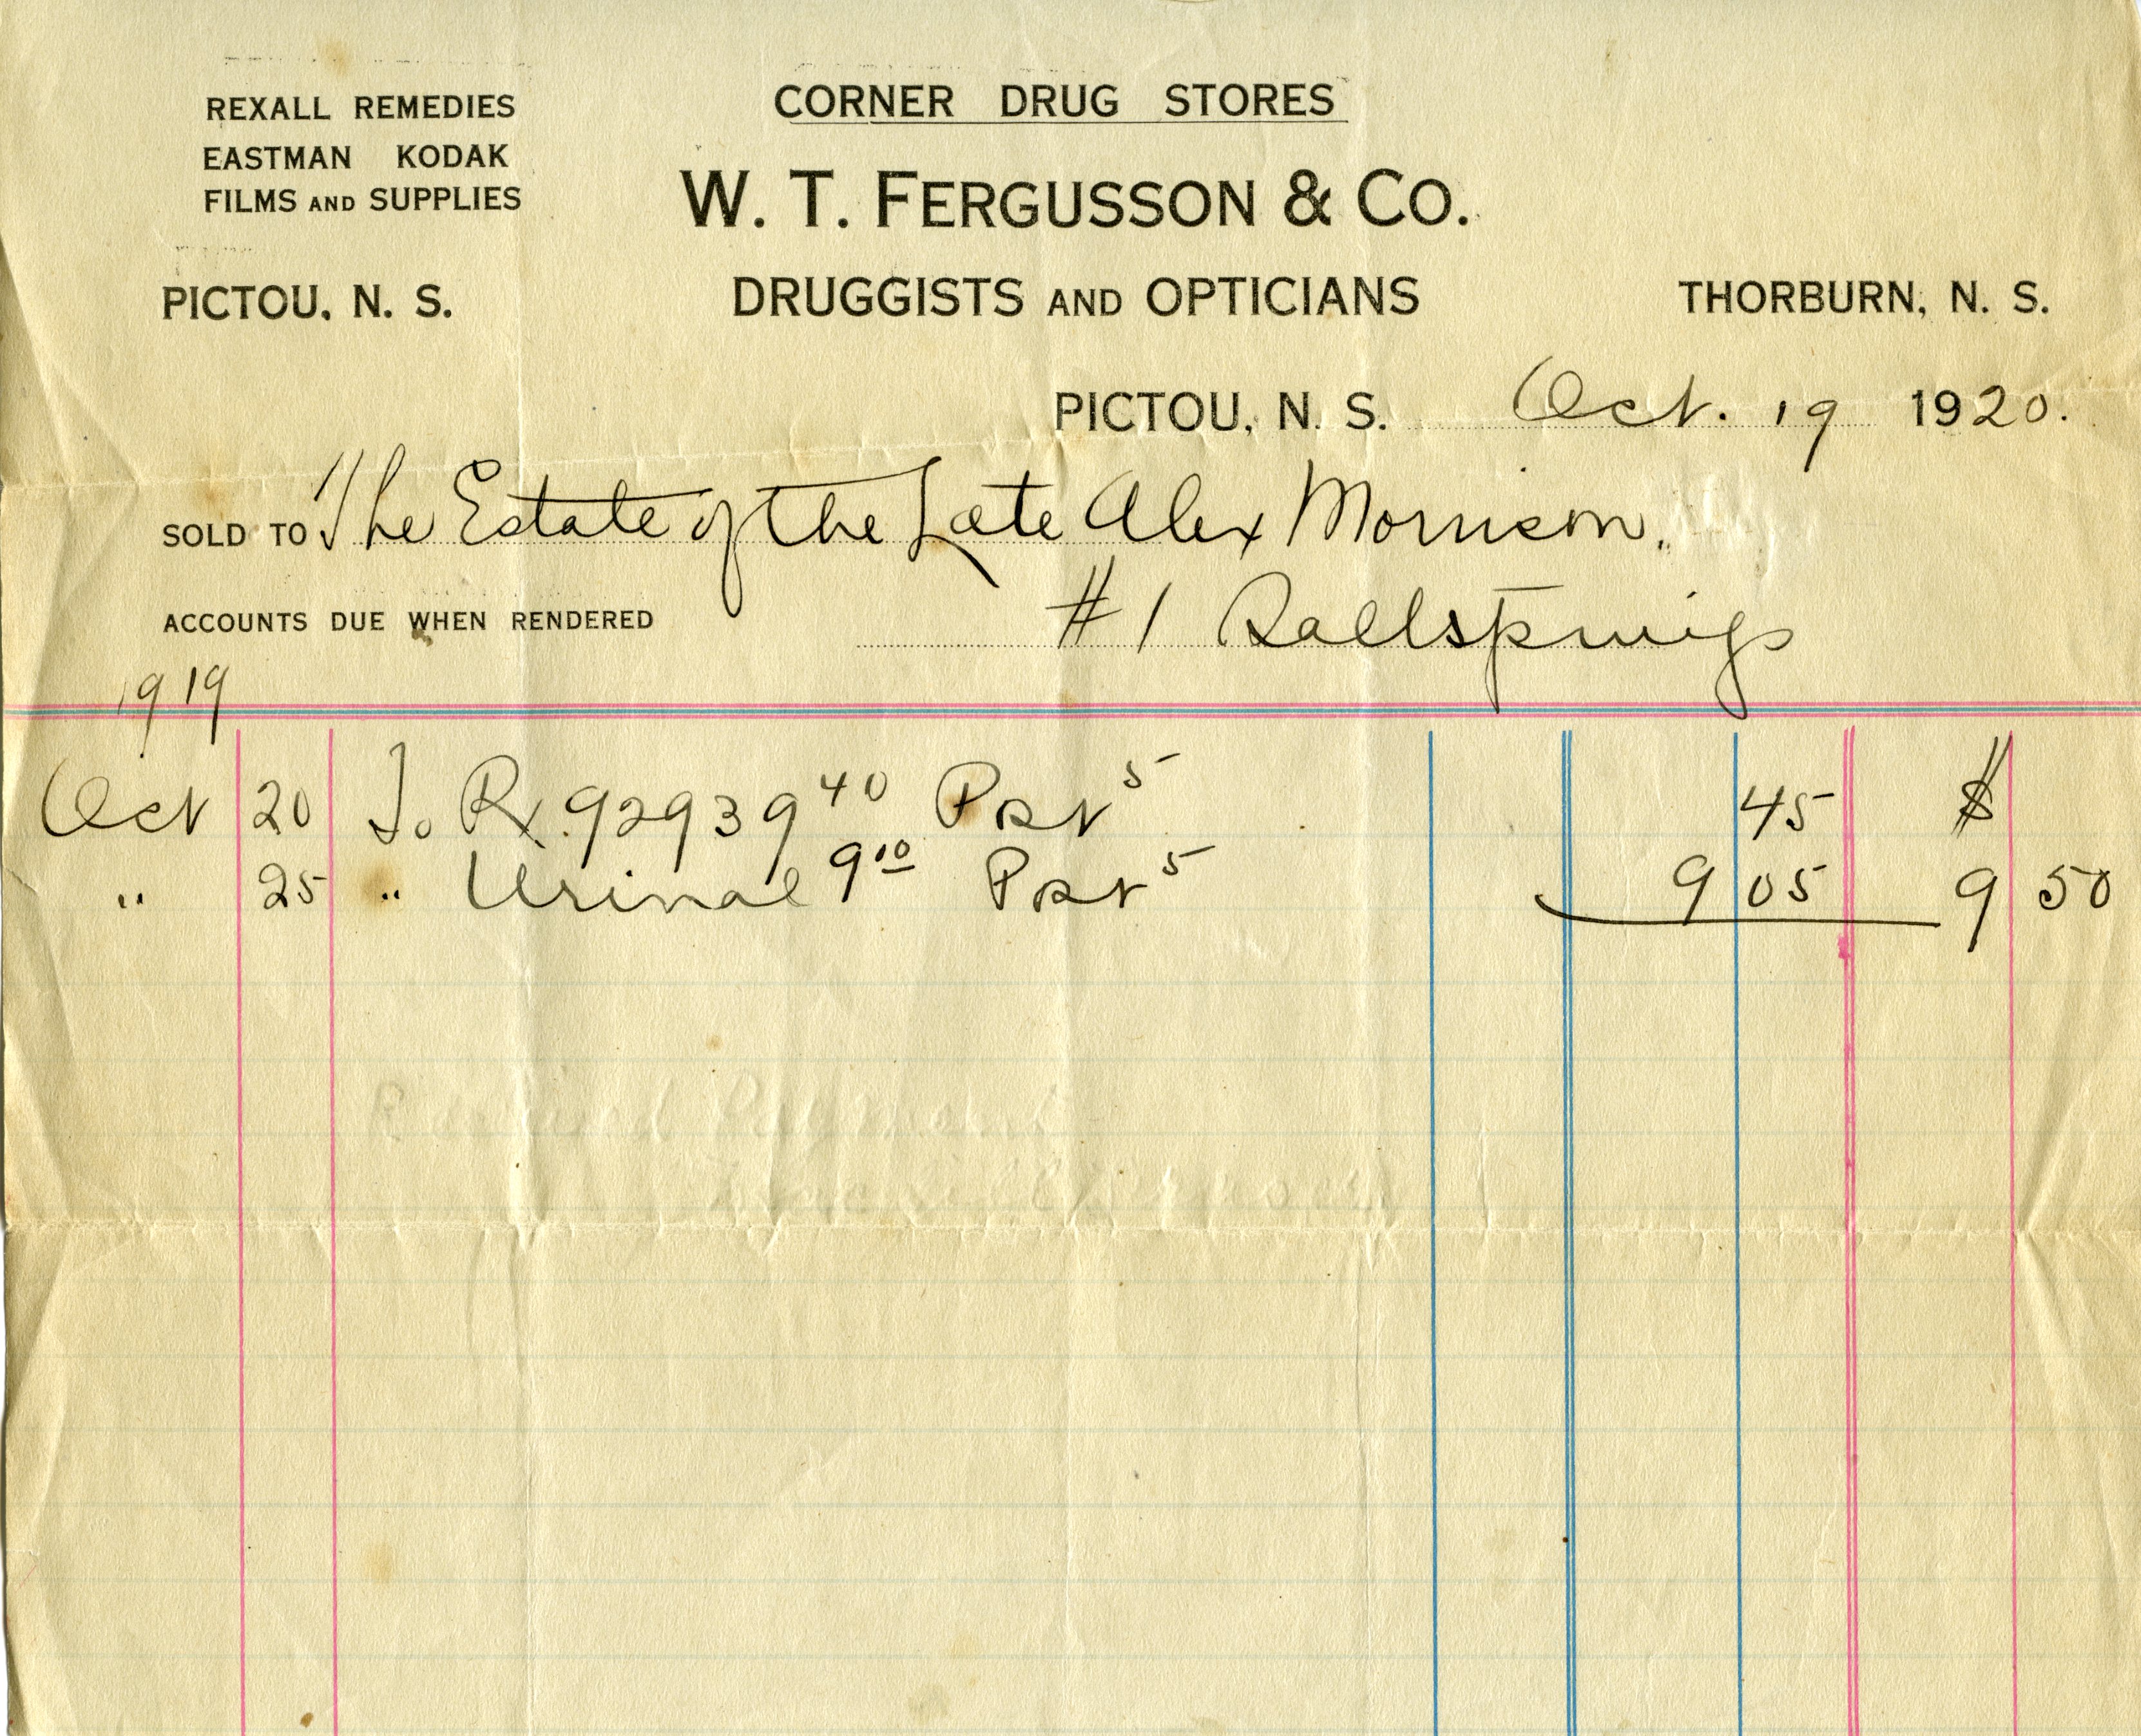 REXALL REMEDIES
EASTMAN KODAK
FILMS AND SUPPLIES
CORNER DRUG STORES
W. T. FERGUSSON & CO.
PICTOU, N. S.
DRUGGISTS AND OPTICIANS
THORBURN, N. S.
PICTOU, N. S. Oct. 19 1920.
SOLD TO The Estate of the Late Alex Morrison.
ACCOUNTS DUE WHEN RENDERED #1 Saltsprings
1919
Oct 20 To Rx 92939 40 Post 5 45 $
" 25 " Urinal 9 10 Post 5 9 05 9 50
Received Payment